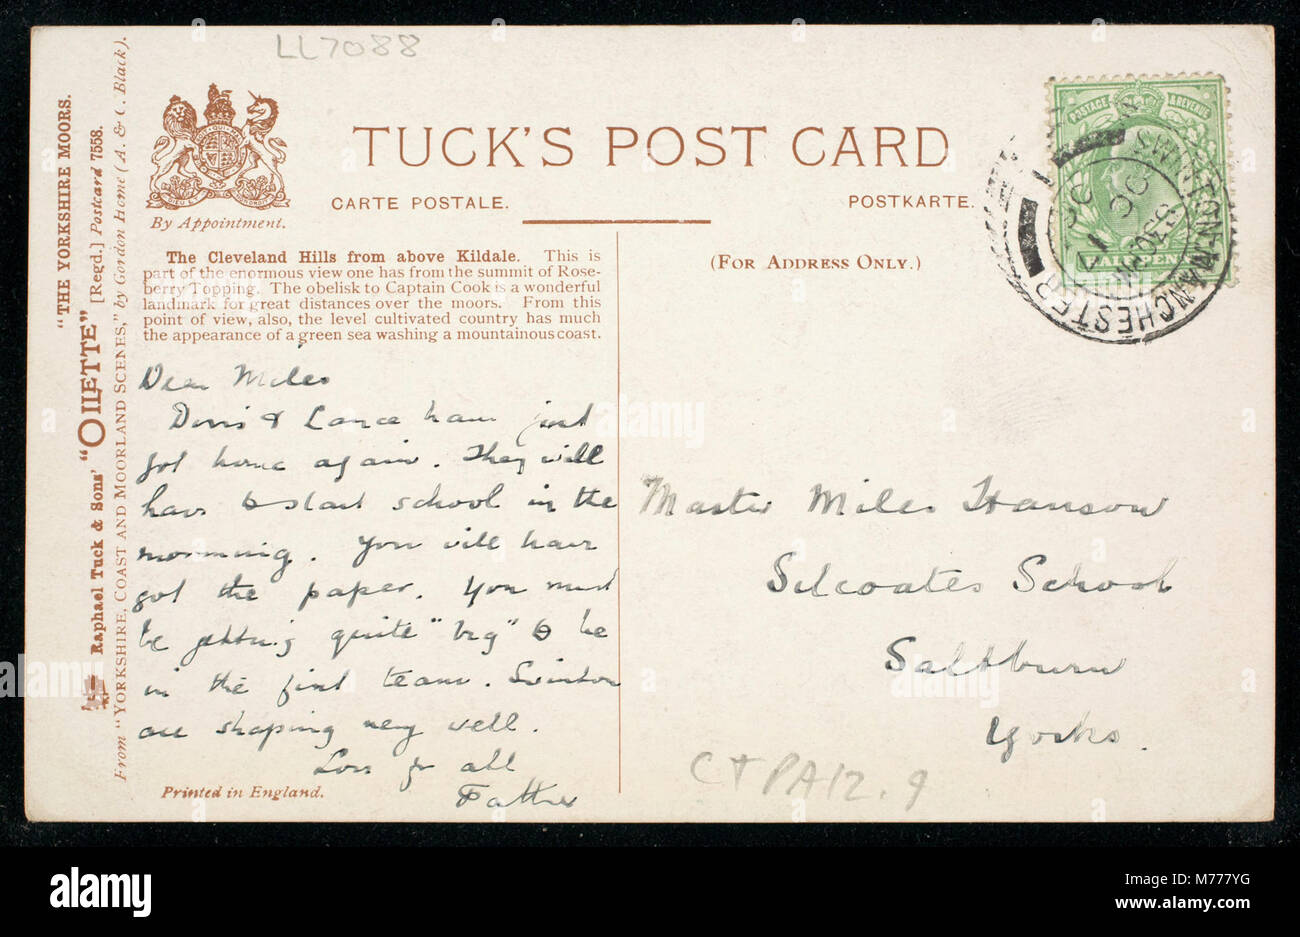 LL7088
"THE YORKSHIRE MOORS.
Raphael Tuck & Sons' "OILETTE" [Regd.] Postcard 7558.
From "YORKSHIRE, COAST AND MOORLAND SCENES," by Gordon Home (A. & C. Black).
By Appointment.
TUCK'S POST CARD
CARTE POSTALE.
POSTKARTE.
The Cleveland Hills from above Kildale. This is
part of the enormous view one has from the summit of Rose-
berry Topping. The obelisk to Captain Cook is a wonderful
landmark for great distances over the moors. From this
point of view, also, the level cultivated country has much
the appearance of a green sea washing a mountainous coast.
(FOR ADDRESS ONLY.)
POSTAGE & REVENUE
SWINTON MANCHESTER
Dear Miles
Doris & Lance have just
got home again. They will
have to start school in the
morning. You will have
got the paper. You must
be getting quite "big" to be
in the first team. Swinton
are shaping very well.
Love fr all
Father
Master Miles Hanson
Silcoates School
Saltburn
Yorks.
C+PA12.9
Printed in England.
alamy
Image ID: M777YG
www.alamy.com